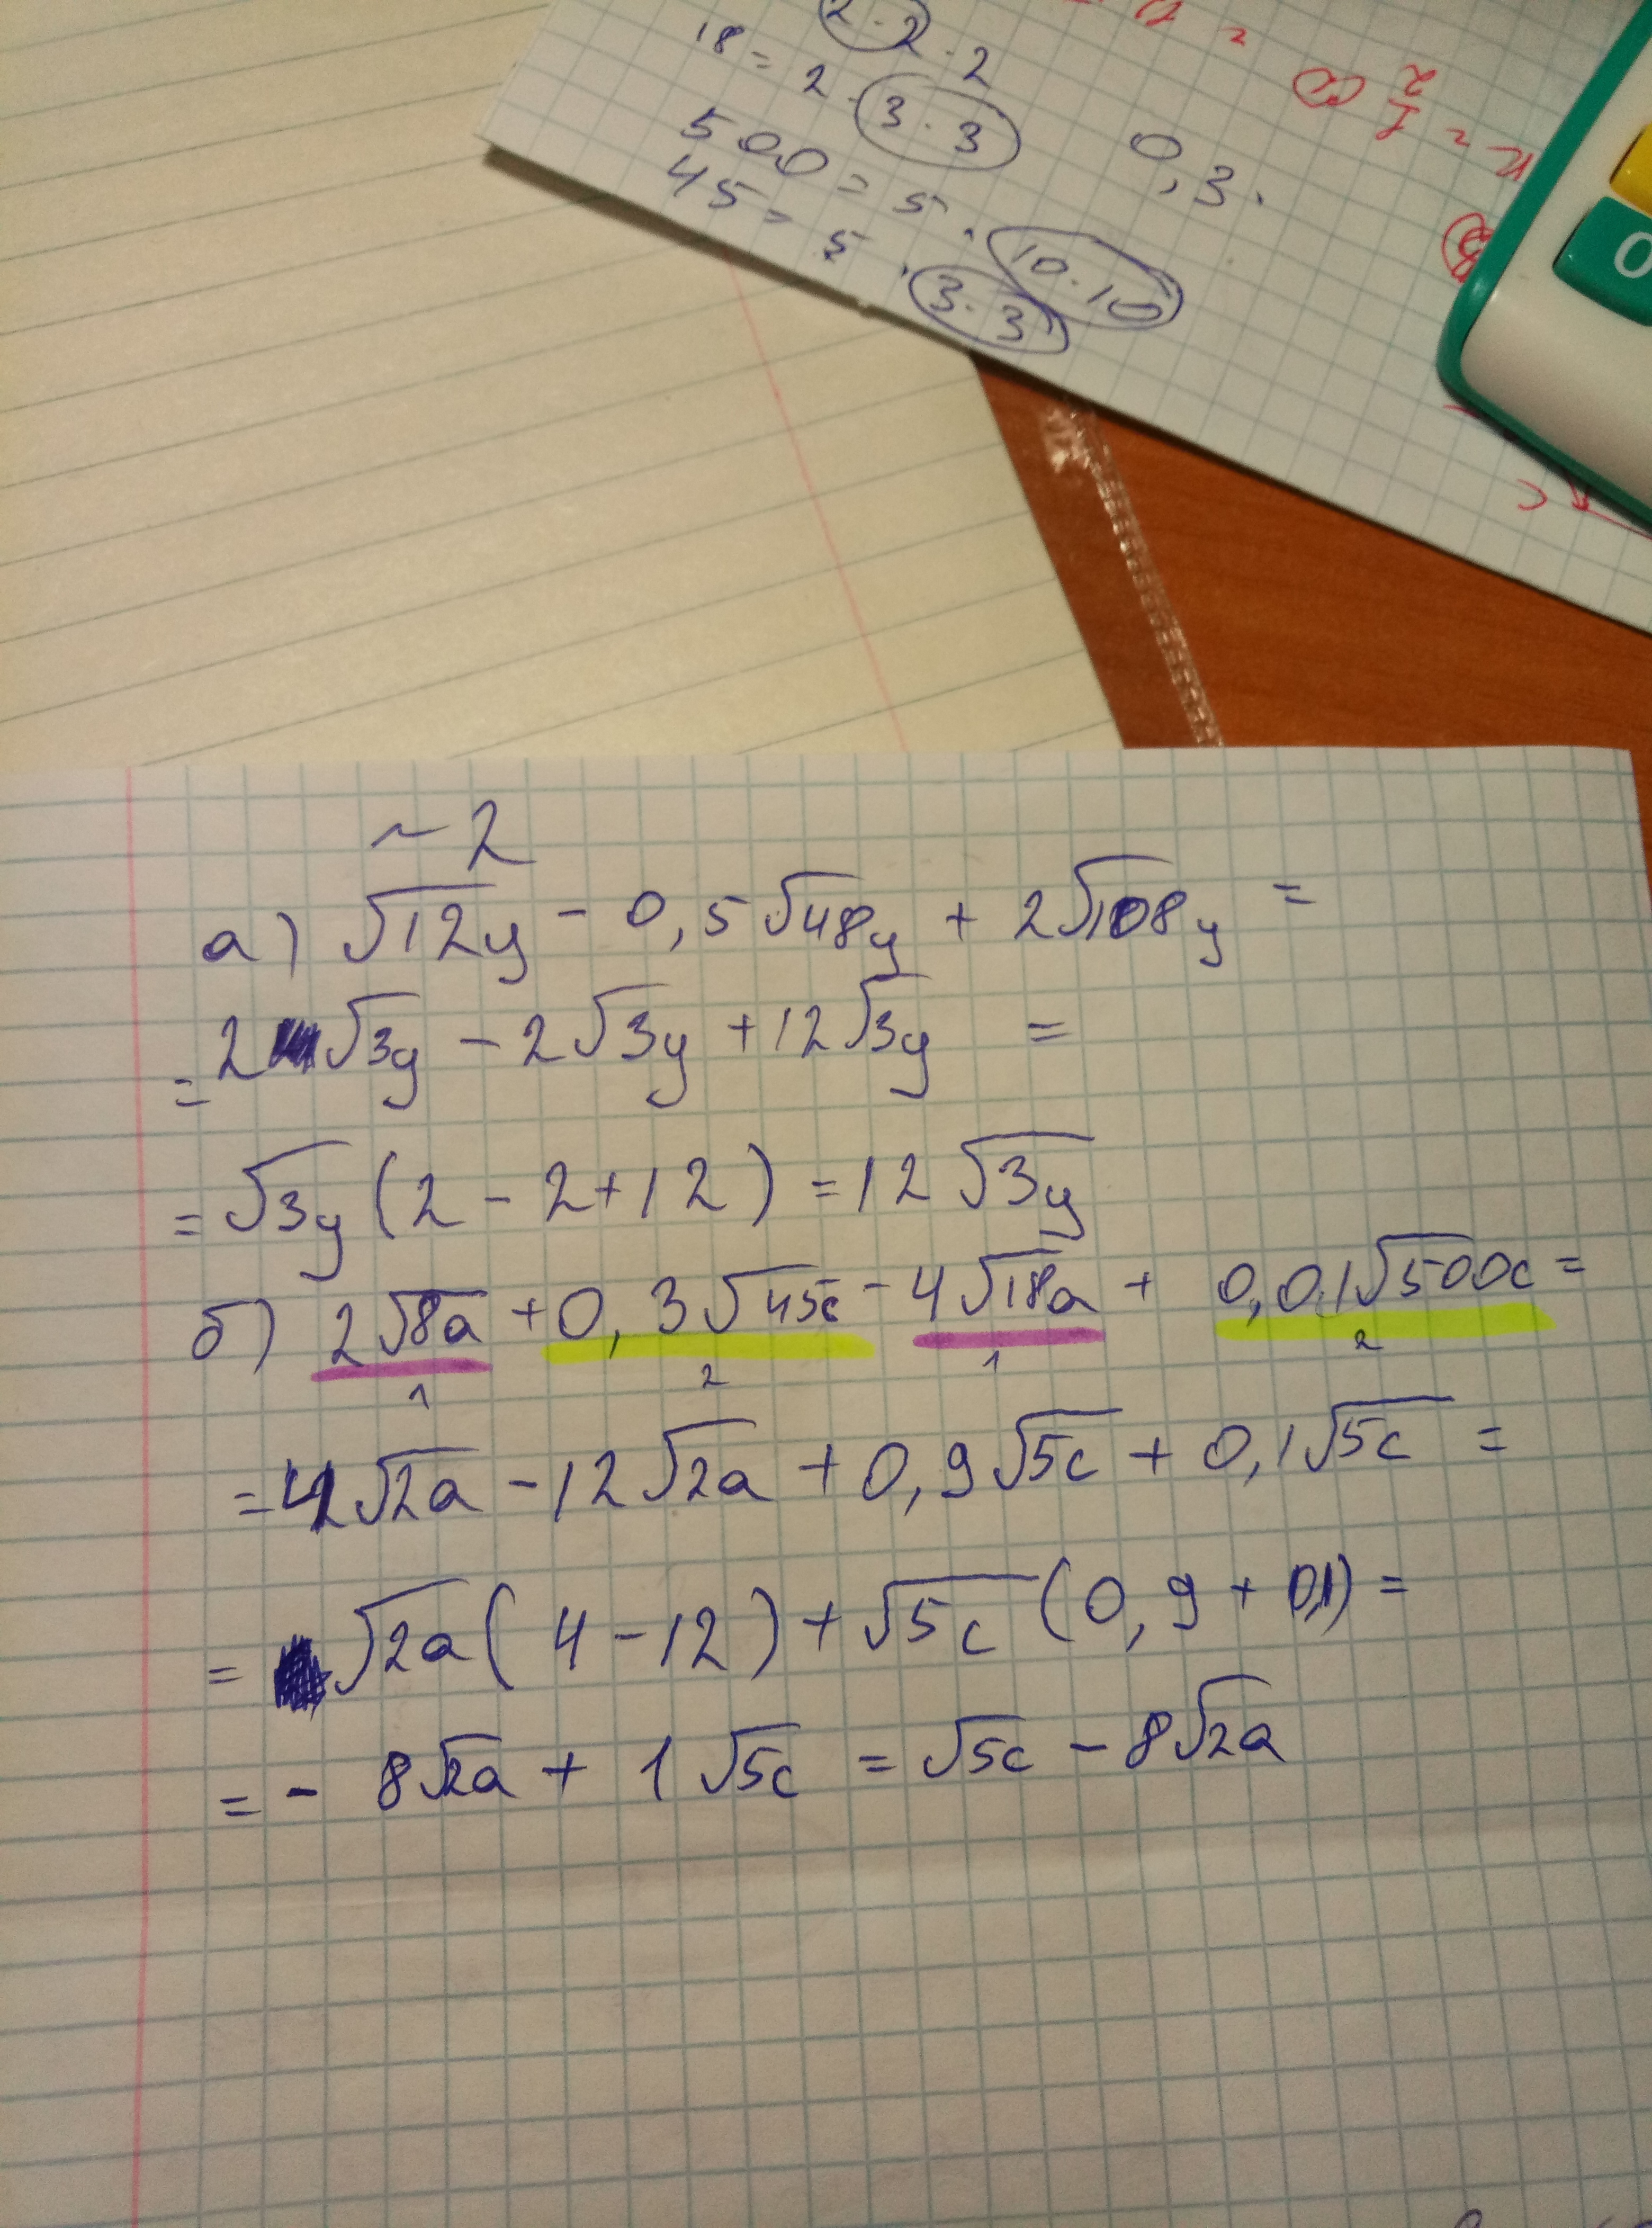 2 · 2 · 2
18 = 2 · 3 · 3
500 = 5 · 10 · 10
45 = 5 · 3 · 3
0,3 ·
0
~ 2
а) √12y - 0,5√48y + 2√108y =
= 2√3y - 2√3y + 12√3y =
= √3y (2 - 2 + 12) = 12√3y
б) 2√8a + 0,3√45c - 4√18a + 0,01√500c =
1 2 1 2
= 4√2a - 12√2a + 0,9√5c + 0,1√5c =
= √2a (4 - 12) + √5c (0,9 + 0,1) =
= - 8√2a + 1√5c = √5c - 8√2a